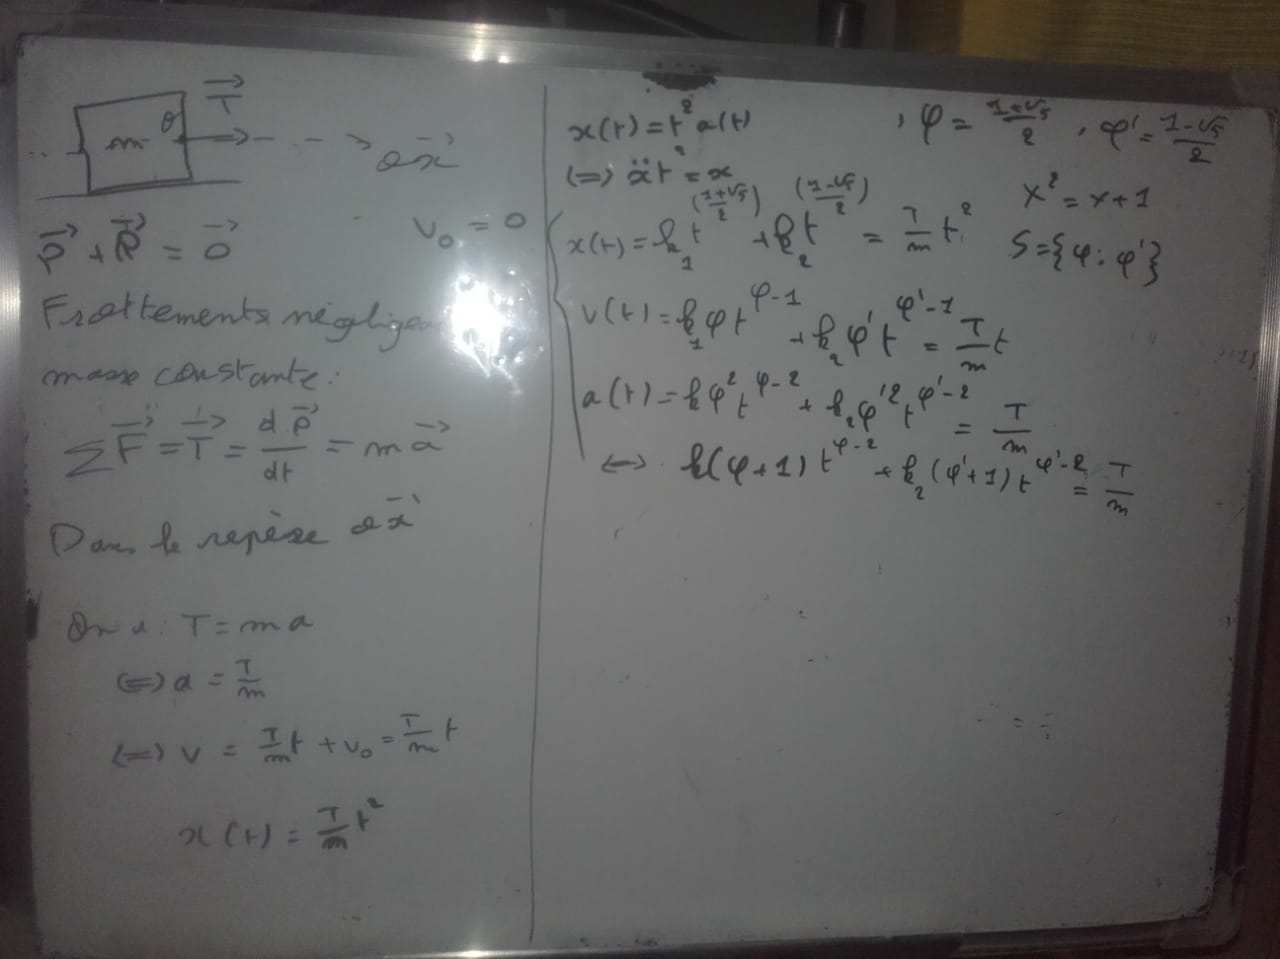 m O T⃗ O x⃗
P⃗ + R⃗ = 0⃗ V₀ = 0
Frottements
masse constante :
∑F⃗ = T⃗ = dp⃗/dt = m a⃗
Dans le repère O x⃗
On a : T = m a
⟺ a = T/m
⟺ v = T/m t + v₀ = T/m t
x(t) = T/m t²
x(t) = t² a(t) , φ = (1+√5)/2 , φ' = (1-√5)/2
⟺ ẍ t² = x
X² = X + 1
x(t) = k₁ t^((1+√5)/2) + k₂ t^((1-√5)/2) = T/m t²
S = {φ ; φ'}
v(t) = k₁ φ t^(φ-1) + k₂ φ' t^(φ'-1) = T/m t
a(t) = k φ² t^(φ-2) + k₂ φ'² t^(φ'-2) = T/m
⟷ k(φ+1) t^(φ-2) + k₂ (φ'+1) t^(φ'-2) = T/m